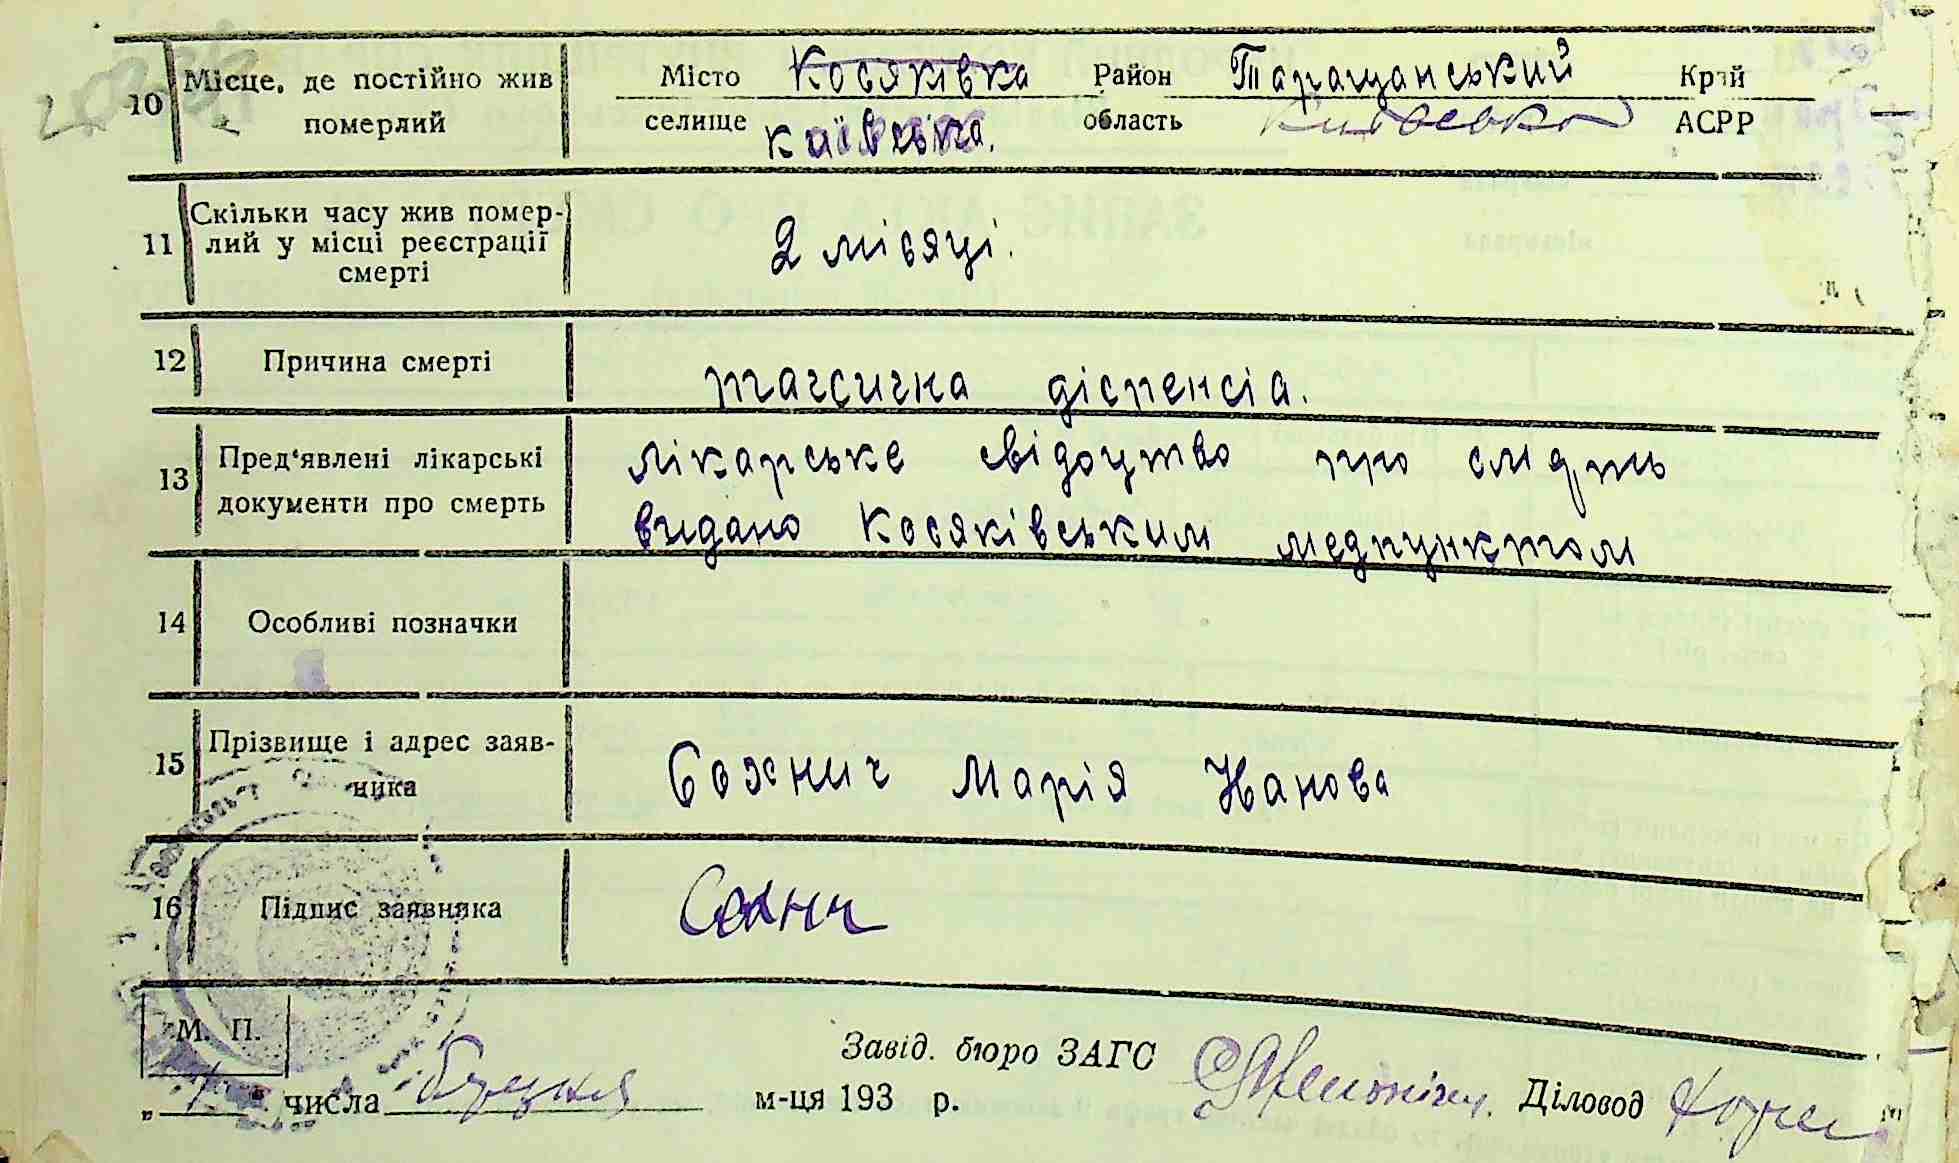 10 Місце, де постійно жив померлий
Місто Косяківка Район Таращанський Край
селище київська. область Київська АСРР
11 Скільки часу жив помер-
лий у місці реєстрації
смерті
2 місяці.
12 Причина смерті
тагсична діспенсіа.
13 Пред'явлені лікарські
документи про смерть
лікарське свідоцтво про смерть
видано Косяківським медпунктом
14 Особливі позначки
15 Прізвище і адрес заяв-
ника
Марія
16 Підпис заявника
М. П.
Завід. бюро ЗАГС
Діловод
числа м-ця 193 р.